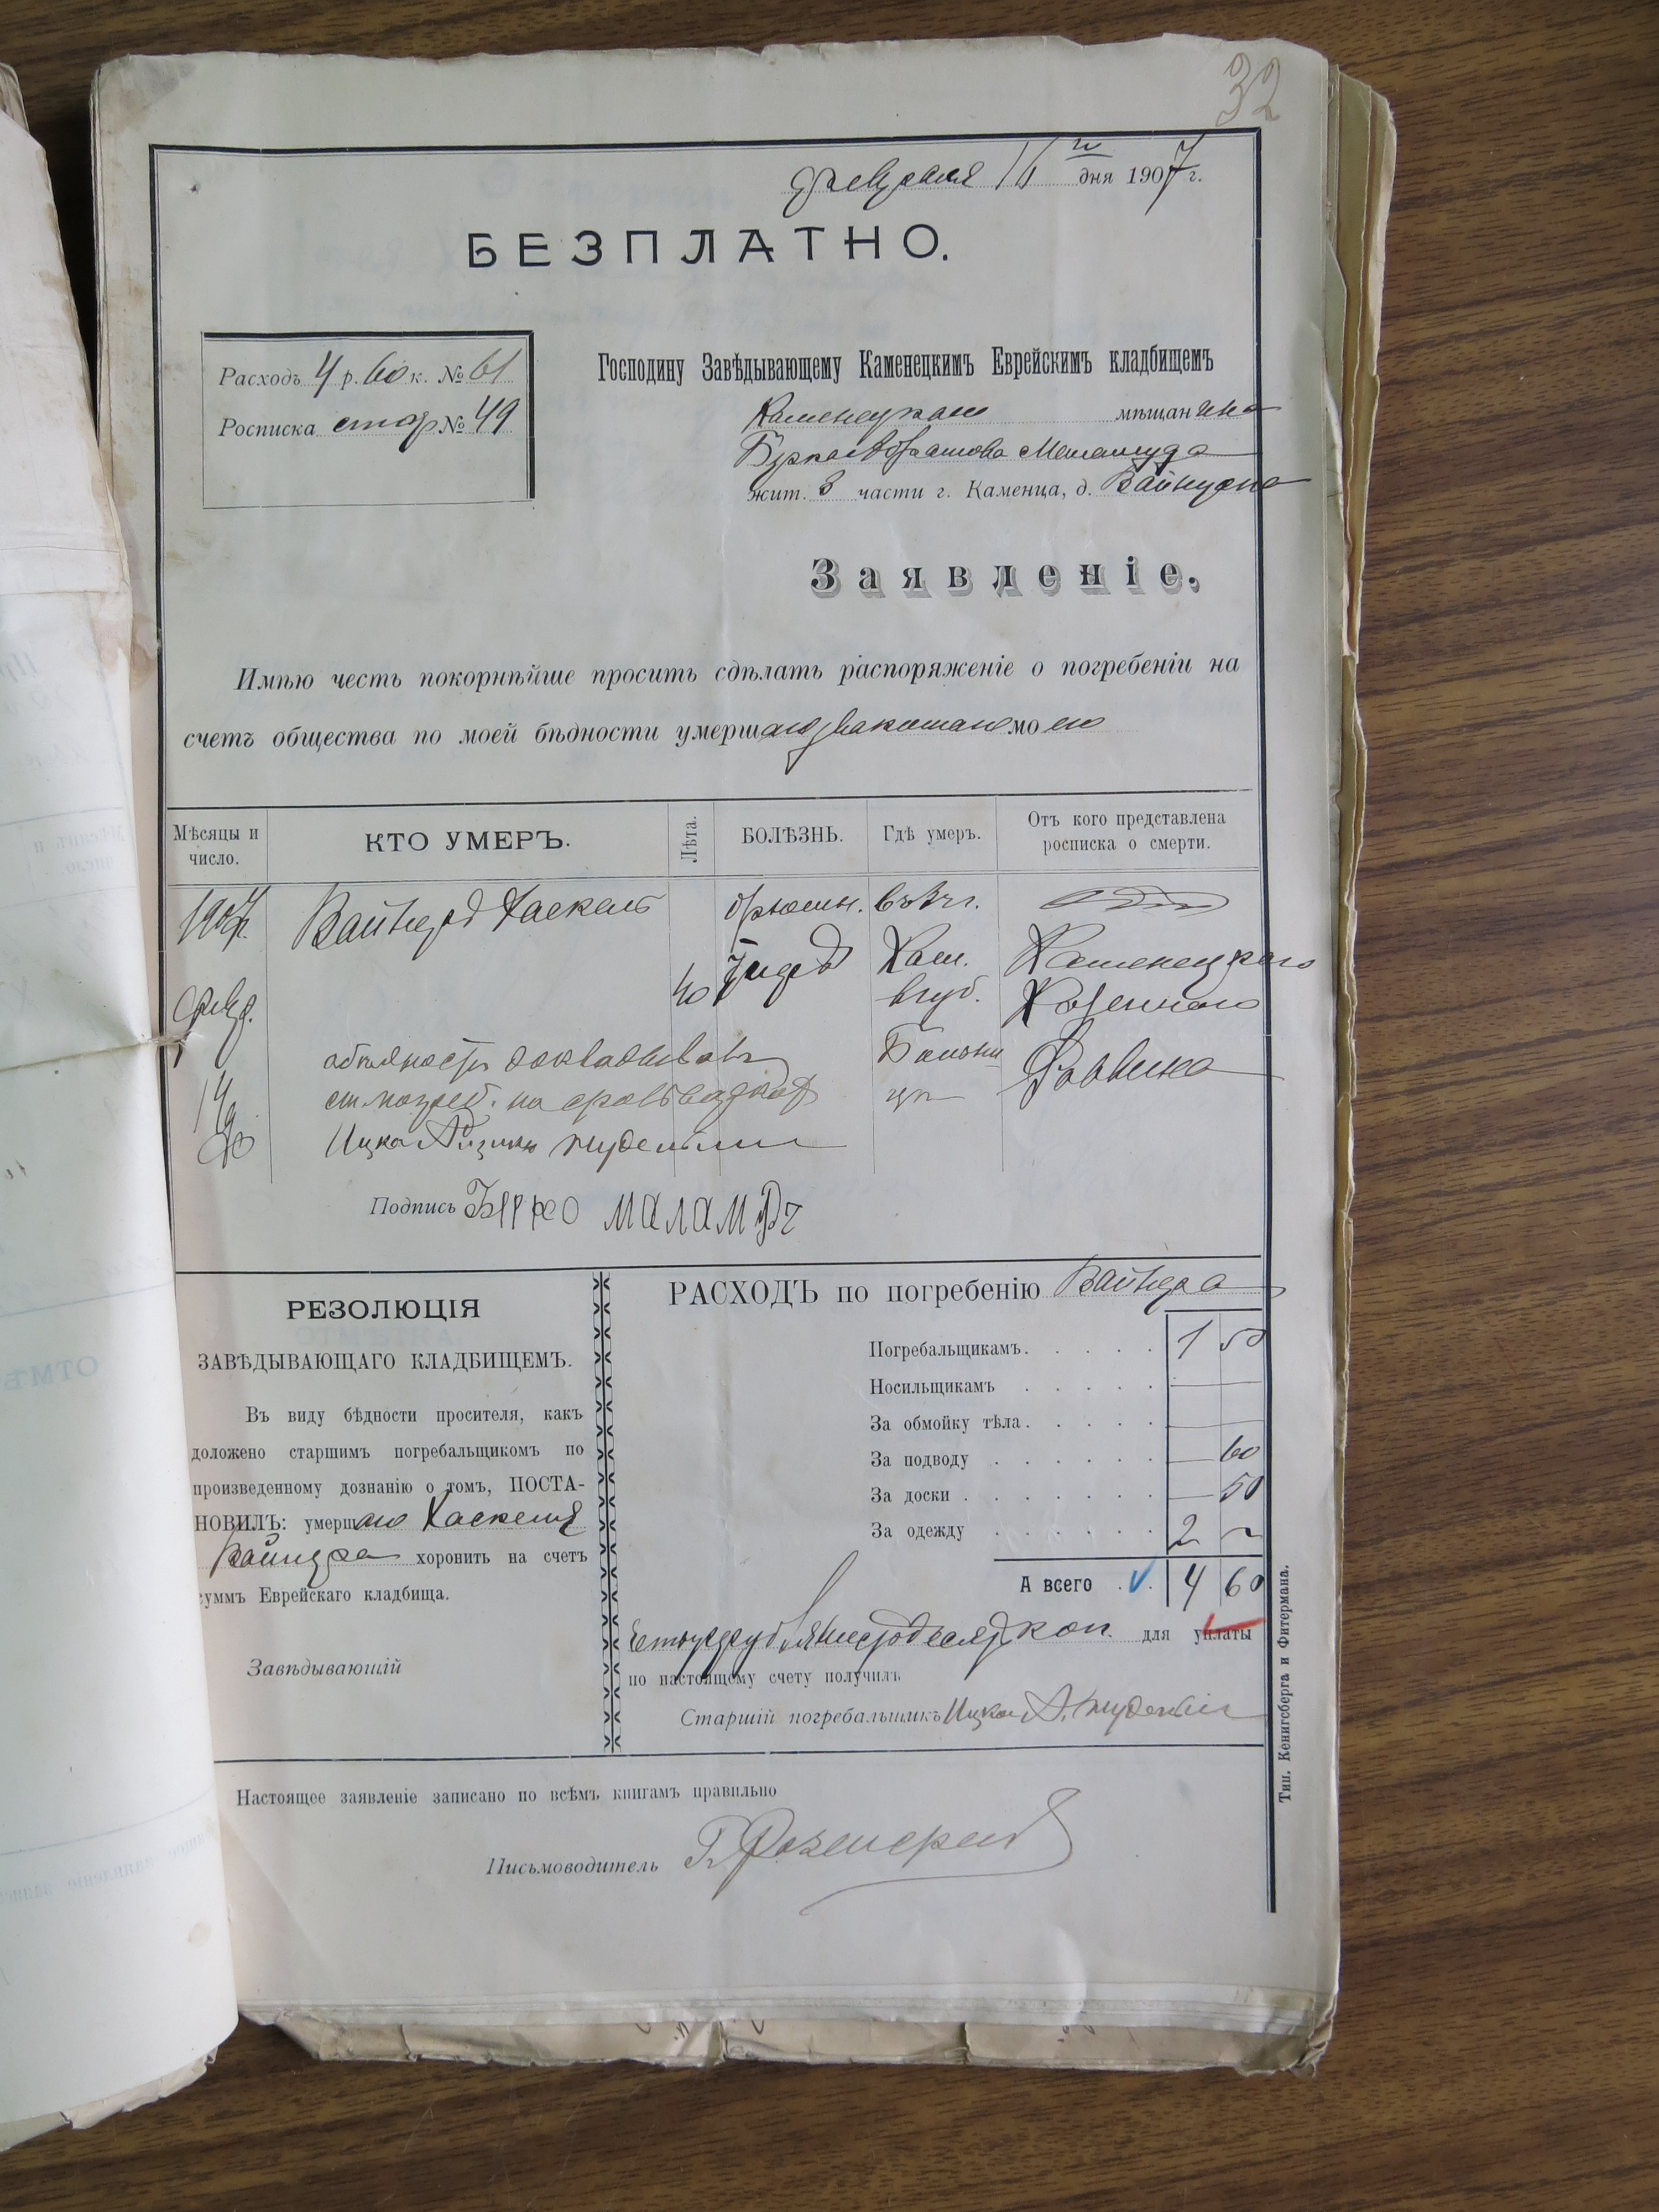 32
февраля 16 го дня 1907 г.
БЕЗПЛАТНО.
Расходъ 4 р. 60 к. № 61
Росписка стар № 49
Господину Завѣдывающему Каменецкимъ Еврейскимъ кладбищемъ
Каменецкаго мѣщанина
Берка Меламуда
жит. 3 части г. Каменца, д.
Заявленіе.
Имѣю честь покорнѣйше просить сдѣлать распоряженіе о погребеніи на
счетъ общества по моей бѣдности умершаго знакомаго моего
Мѣсяцы и число.
КТО УМЕРЪ.
Лѣта.
БОЛѢЗНЬ.
Гдѣ умеръ.
Отъ кого представлена росписка о смерти.
1907 г. Вайнеръ Хаскель брюшн. въ г.
тифъ Кам. Каменецкаго
февр. 40 в губ. Казеннаго
о бѣдности Больни Раввина
14 ст. погреб. на цѣ
Ицко
Подпись Берко маламуд
РЕЗОЛЮЦІЯ
ЗАВѢДЫВАЮЩАГО КЛАДБИЩЕМЪ.
Въ виду бѣдности просителя, какъ
доложено старшимъ погребальщикомъ по
произведенному дознанію о томъ, ПОСТА-
НОВИЛЪ: умершаго Хаскеля
Вайнера хоронить на счетъ
суммъ Еврейскаго кладбища.
Завѣдывающій
РАСХОДЪ по погребенію Вайнера
Погребальщикамъ. . . . . 1 50
Носильщикамъ . . . . . —
За обмойку тѣла. . . . . —
За подводу . . . . . . — 60
За доски . . . . . . . — 50
За одежду . . . . . . 2 —
А всего . V . 4 60
Четыре рубля шестьдесятъ коп. для уплаты
по настоящему счету получилъ
Старшій погребальщикъ Ицко А.
Настоящее заявленіе записано по всѣмъ книгамъ правильно
Письмоводитель
Тип. Кенигсберга и Фитермана.